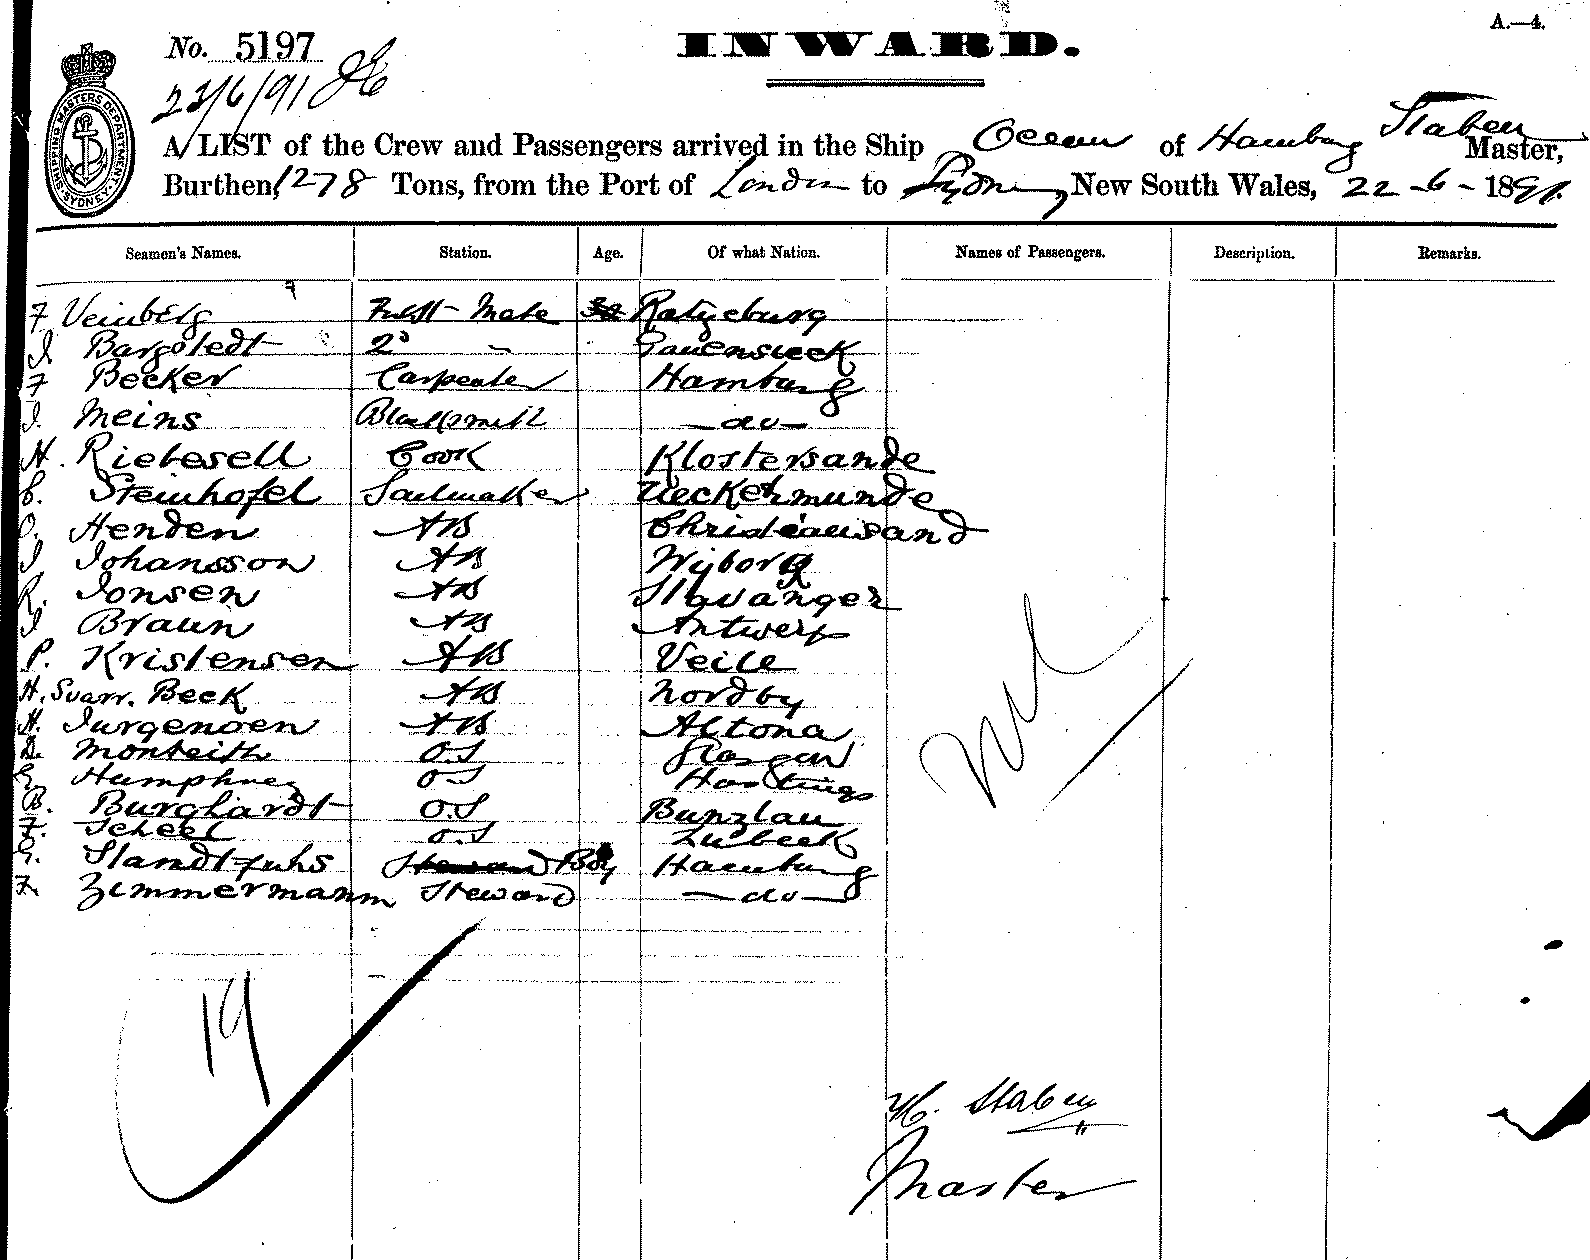 A.—4.
No. 5197
INWARD.
23/6/91
SHIPPING MASTERS DEPARTMENT SYDNEY
A LIST of the Crew and Passengers arrived in the Ship Ocean of Hamburg Staben Master,
Burthen, 1278 Tons, from the Port of London to Sydney, New South Wales, 22-6-1891.
Seamen's Names. Station. Age. Of what Nation. Names of Passengers. Description. Remarks.
F Veinberg First Mate Ratzeburg
J. Bargstedt 2d "
F Becker Carpenter Hamburg
J. Meins Blacksmith —do—
H. Riebesell Cook Klostersande
C. Steinhofel Sailmaker Ueckermunde
O. Henden AB Christiansand
J Johansson AB Wyborg
R. Jonsen AB Stavanger
J Braun AB Antwerp
P. Kristensen AB Veile
H. Svarr. Beck AB Nordby
H. Jurgensen AB Altona
D. Monteith O.S Glasgow
G. Humphrey O.S Hastings
B. Burghardt O.S Bunzlau
F. Scheel O.S Lubeck
G. Standtfuhs Steward Boy Hamburg
F. Zimmermann Steward —do—
Nil
19
H. Staben
Master